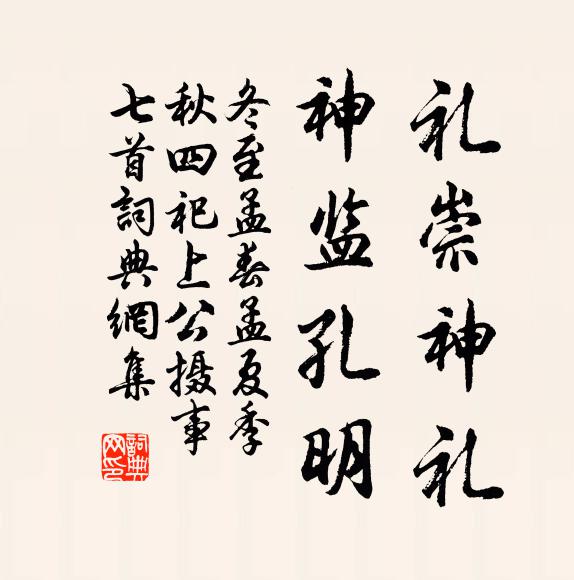 礼崇神礼
神监孔明
冬至孟春孟夏季
秋四祀上公摄事
七首詞典網集
詞典网印